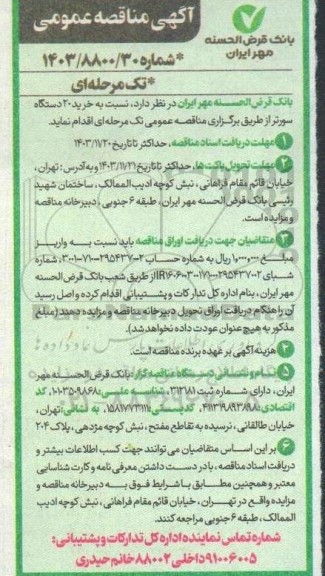 بانک قرض الحسنه
مهر ایران
آگهی مناقصه عمومی
*شماره ۱۴۰۳/۸۸۰۰/۳۰
*تک مرحله‌ای
بانک قرض الحسنه مهر ایران در نظر دارد، نسبت به خرید ۲۰ دستگاه
سورتر از طریق برگزاری مناقصه عمومی تک مرحله ای اقدام نماید.
۱ مهلت دریافت اسناد مناقصه، حداکثر تا تاریخ ۱۴۰۳/۱۱/۲۰
۲ مهلت تحویل پاکت ها، حداکثر تا تاریخ ۱۴۰۳/۱۱/۲۱ و به آدرس: تهران،
خیابان قائم مقام فراهانی، نبش کوچه ادیب الممالک، ساختمان شهید
رئیسی بانک قرض الحسنه مهر ایران، طبقه ۶ جنوبی، دبیرخانه مناقصه
و مزایده است.
۳ متقاضیان جهت دریافت اوراق مناقصه باید نسبت به واریز
مبلغ ریال به شماره حساب شماره
شبای از طریق شعب بانک قرض الحسنه
مهر ایران، بنام اداره کل تدارکات و پشتیبانی اقدام کرده و اصل رسید
آن را هنگام دریافت اوراق تحویل دبیرخانه مناقصه و مزایده دهند (مبلغ
مذکور به هیچ عنوان عودت داده نخواهد شد).
۴ هزینه آگهی بر عهده برنده مناقصه است.
۵ نام و نشانی دستگاه مناقصه گزار: بانک قرض الحسنه مهر
ایران، دارای شماره ثبت شناسه ملی: کد
اقتصادی: کدپستی: ۱۵۸۱۷۷۳۱۱۱، به نشانی: تهران،
خیابان طالقانی، نرسیده به تقاطع مفتح، نبش کوچه مژدهی، پلاک ۲۰۴
۶ بر این اساس متقاضیان می توانند جهت کسب اطلاعات بیشتر و
دریافت اسناد مناقصه، با در دست داشتن معرفی نامه و کارت شناسایی
معتبر و همچنین مطابق با شرایط فوق به دبیرخانه مناقصه و
مزایده واقع در تهران، خیابان قائم مقام فراهانی، نبش کوچه ادیب
الممالک، طبقه ۶ جنوبی مراجعه کنند.
شماره تماس نماینده اداره کل تدارکات و پشتیبانی:
۹۱۰۰۶۰۰۵ داخلی ۸۸۰۰۲ خانم حیدری